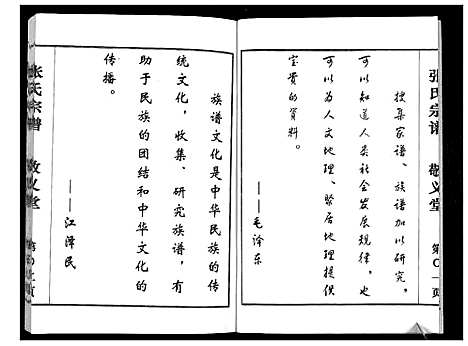 张氏宗谱 敬义堂 第〇一页
搜集家谱、族谱加以研究，
可以知道人类社会发展规律，也
可以为人文地理、聚居地理提供
宝贵的资料。
——毛泽东
族谱文化是中华民族的传
统文化，收集、研究族谱，有
助于民族的团结和中华文化的
传播。
——江泽民
张氏宗谱 敬义堂